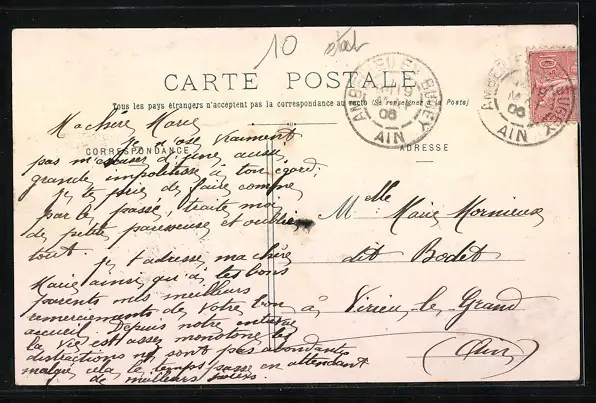 10
CARTE POSTALE
Tous les pays étrangers n'acceptent pas la correspondance au recto (Se renseigner à la Poste)
AMBERIEU EN BUGEY
19
06
AIN
AIN
10
CORRESPONDANCE
ADRESSE
Ma chère Marie
Je n'ose vraiment
pas m'excuser d'une aussi
grande impolitesse à ton égard;
je te prie de faire comme
par le passé, traite moi
de petite paresseuse et oublie
tout. Je t'adresse, ma chère
Marie ainsi qu'à tes bons
parents mes meilleurs
remerciements de votre bon
accueil. Depuis notre
la vie est assez monotone, les
distractions ne sont pas abondantes
malgré cela le temps passe en attendant
de meilleurs
Melle Marie Mornieux
dit Bodet
à Virieu-le-Grand
(Ain)